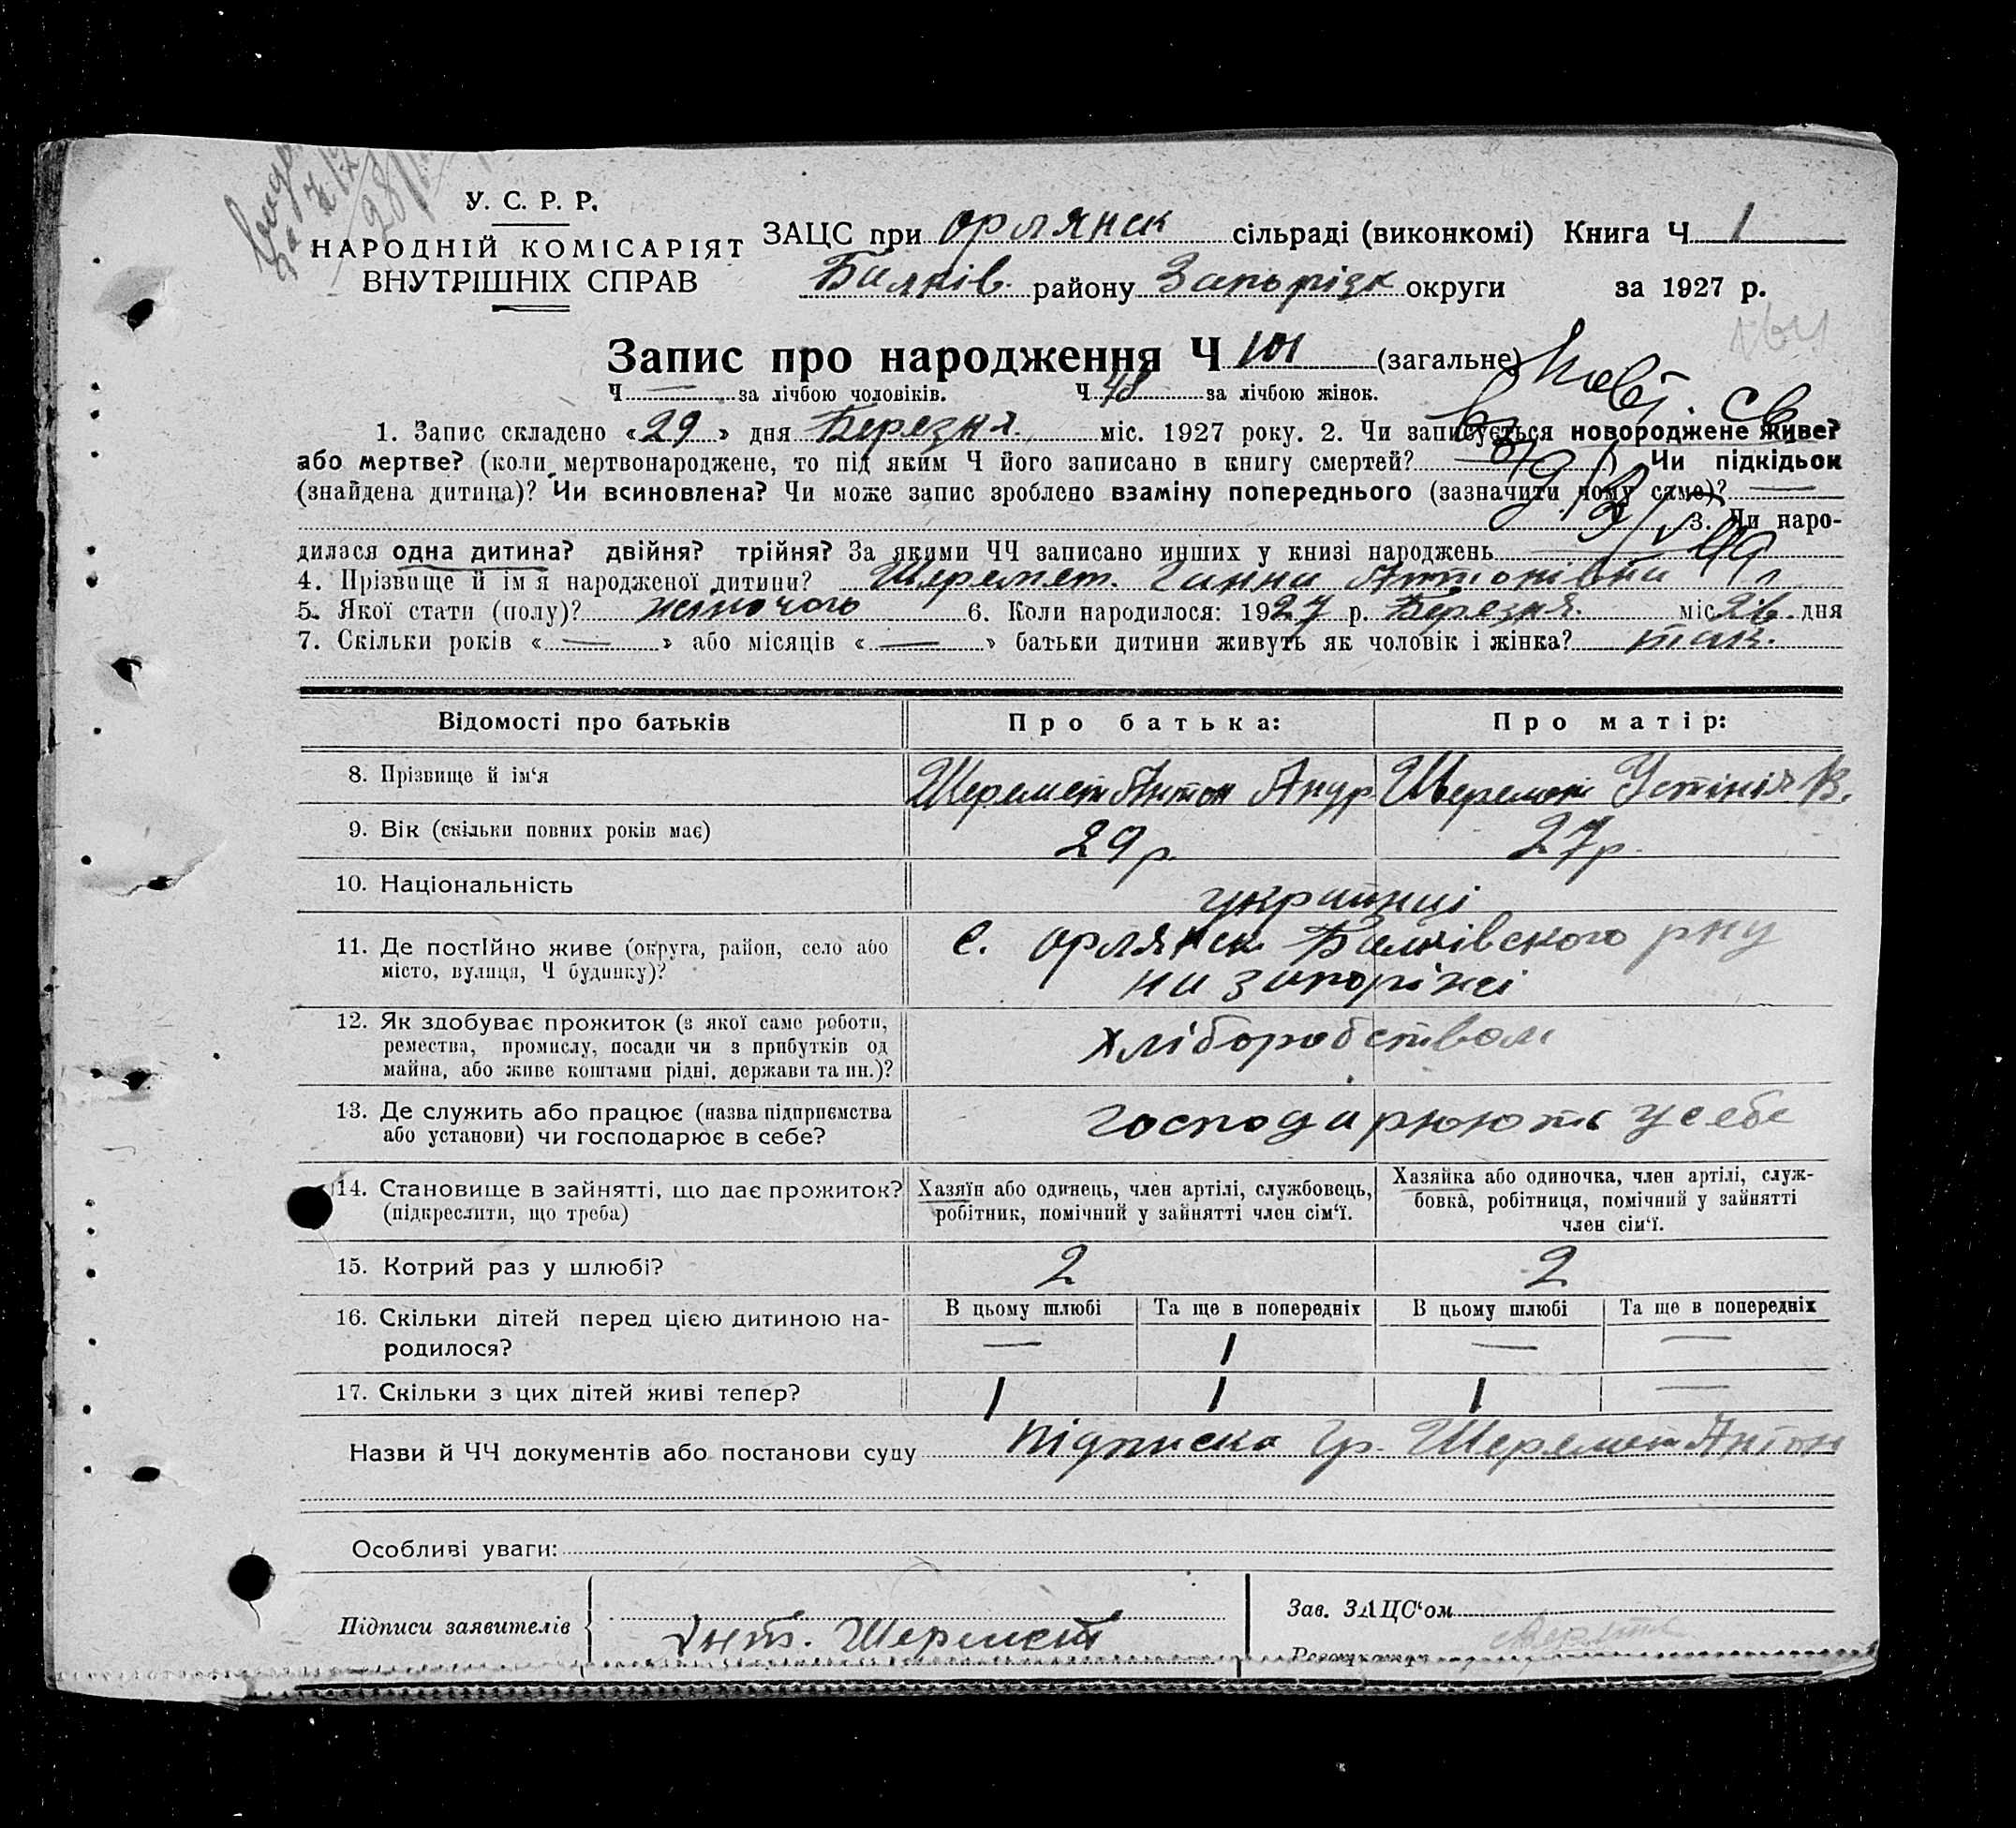 У. С. Р. Р.
НАРОДНІЙ КОМІСАРІЯТ
ВНУТРІШНІХ СПРАВ
ЗАЦС при Орлянск сільраді (виконкомі) Книга Ч 1
Балків. району Запорізк округи за 1927 р.
Запис про народження Ч 101 (загальне)
Ч — за лічбою чоловіків. Ч 48 за лічбою жінок.
1. Запис складено «29» дня Березня міс. 1927 року. 2. Чи записується новороджене живе?
або мертве? (коли мертвонароджене, то під яким Ч його записано в книгу смертей? ) Чи підкідьок
(знайдена дитина)? Чи всиновлена? Чи може запис зроблено взаміну попереднього (зазначити чому саме)? —
3. Чи наро-
дилася одна дитина? двійня? трійня? За якими ЧЧ записано инших у книзі народжень
4. Прізвище й ім'я народженої дитини? Шеремет. Ганна Антонівна
5. Якої стати (полу)? жіночого 6. Коли народилося: 1927 р. Березня. міс 26. дня
7. Скільки років « — » або місяців « — » батьки дитини живуть як чоловік і жінка? так.
Відомості про батьків Про батька: Про матір:
8. Прізвище й ім'я Шеремет Антон Андр Шеремет Устінія В.
9. Вік (скільки повних років має) 29 р. 27 р.
10. Національність українці
11. Де постійно живе (округа, район, село або
місто, вулиця, Ч будинку)?
с. Орлянск Балківського рну
на запоріжі
12. Як здобуває прожиток (з якої саме роботи,
ремества, промислу, посади чи з прибутків од
майна, або живе коштами рідні, держави та ин.)?
хліборобством
13. Де служить або працює (назва підприємства
або установи) чи господарює в себе?
господарюють у себе
14. Становище в зайнятті, що дає прожиток?
(підкреслити, що треба)
Хазяїн або одинець, член артілі, службовець,
робітник, помічний у зайнятті член сім'ї.
Хазяйка або одиночка, член артілі, служ-
бовка, робітниця, помічний у зайнятті
член сім'ї.
15. Котрий раз у шлюбі? 2 2
16. Скільки дітей перед цією дитиною на-
родилося?
В цьому шлюбі Та ще в попередніх В цьому шлюбі Та ще в попередніх
— 1 — —
17. Скільки з цих дітей живі тепер? 1 1 1 —
Назви й ЧЧ документів або постанови суду підписка Гр. Шеремет Антон
Особливі уваги:
Підписи заявителів Ант. Шеремет
Зав. ЗАЦС'ом